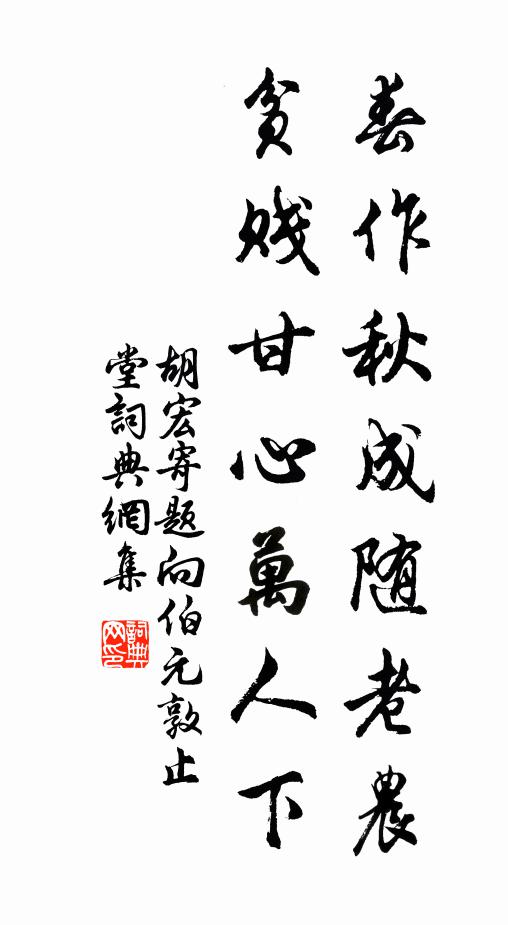 春作秋成随老農
貧賤甘心萬人下
胡宏寄题向伯元敦止
堂詞典網集
詞典
网印